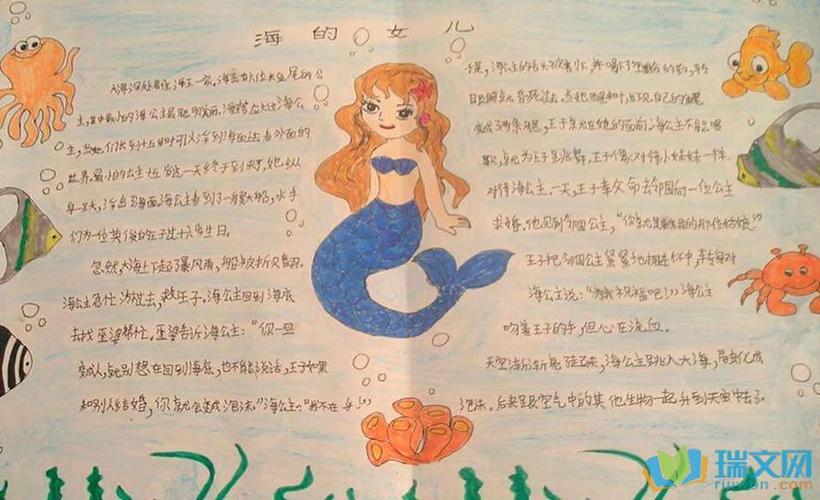 海的女儿
大海深处居住海王一家。海王有六位长鱼尾的公
主,其中最小的海公主最聪明美丽。海公
主,当她们长到十五岁时可以浮到海面上去看外面的
世界,最小的公主也盼这一天终于到来了,她从
浮出海面,海公主看到了一艘大船,水手
们为一位英俊的王子过十六岁生日。
忽然,大海上下起暴风雨,船被折
海公主急忙游过去,救王子。海公主回到海底
去找巫婆帮忙。巫婆告诉海公主:“你一旦
变成人,就别想在回到海底,也不能说话,王子如果
和别人结婚,你就会变成泡沫。”海公主:“我不在乎!”
于是,海公主的舌头被割下,并喝下
自己的尾
变成了两条腿,王子来到她的面前海公主不能唱
歌,就为王子跳舞,王子像对待小妹妹一样
对待海公主。一天,王子奉父命去邻国向一位公主
求婚。他见到邻国公主,“你就是救我的那位姑娘!”
王子把邻国公主紧紧地拥进怀中,转身对
海公主说:“为我祝福吧!”海公主
吻着王子的手,但心在流血。
天空渐渐亮起来,海公主跳入大海,变化成
泡沫。后来跟空气中的其他生物一起升到天空中去了。
瑞文网
ruiwen.com